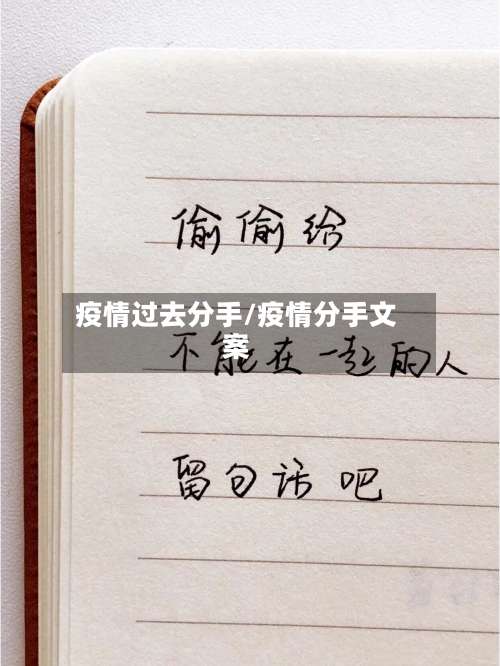 偷偷给
疫情过去分手/疫情分手文
案
不能在一起的人
留句话吧